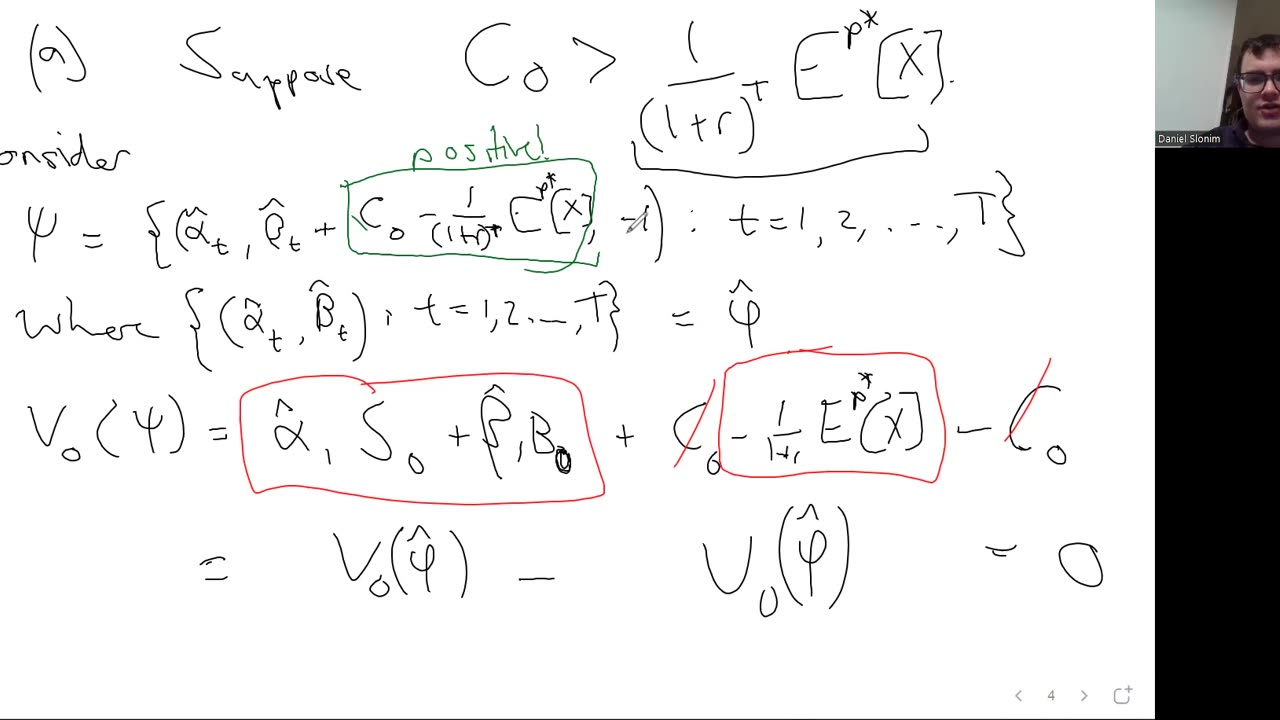 (a) Suppose C₀ > 1/(1+r)^T E^{P*}[X].
onsider
positive!
Ψ = {(α̂_t, β̂_t + C₀ - 1/(1+r)^T E^{P*}[X], -1) : t = 1, 2, ..., T}
where {(α̂_t, β̂_t) : t = 1, 2 ..., T} = φ̂
V₀(Ψ) = α̂₁ S₀ + β̂₁ B₀ + C₀ - 1/1+r E^{P*}[X] - C₀
= V₀(φ̂) - V₀(φ̂) = 0
Daniel Slonim
4